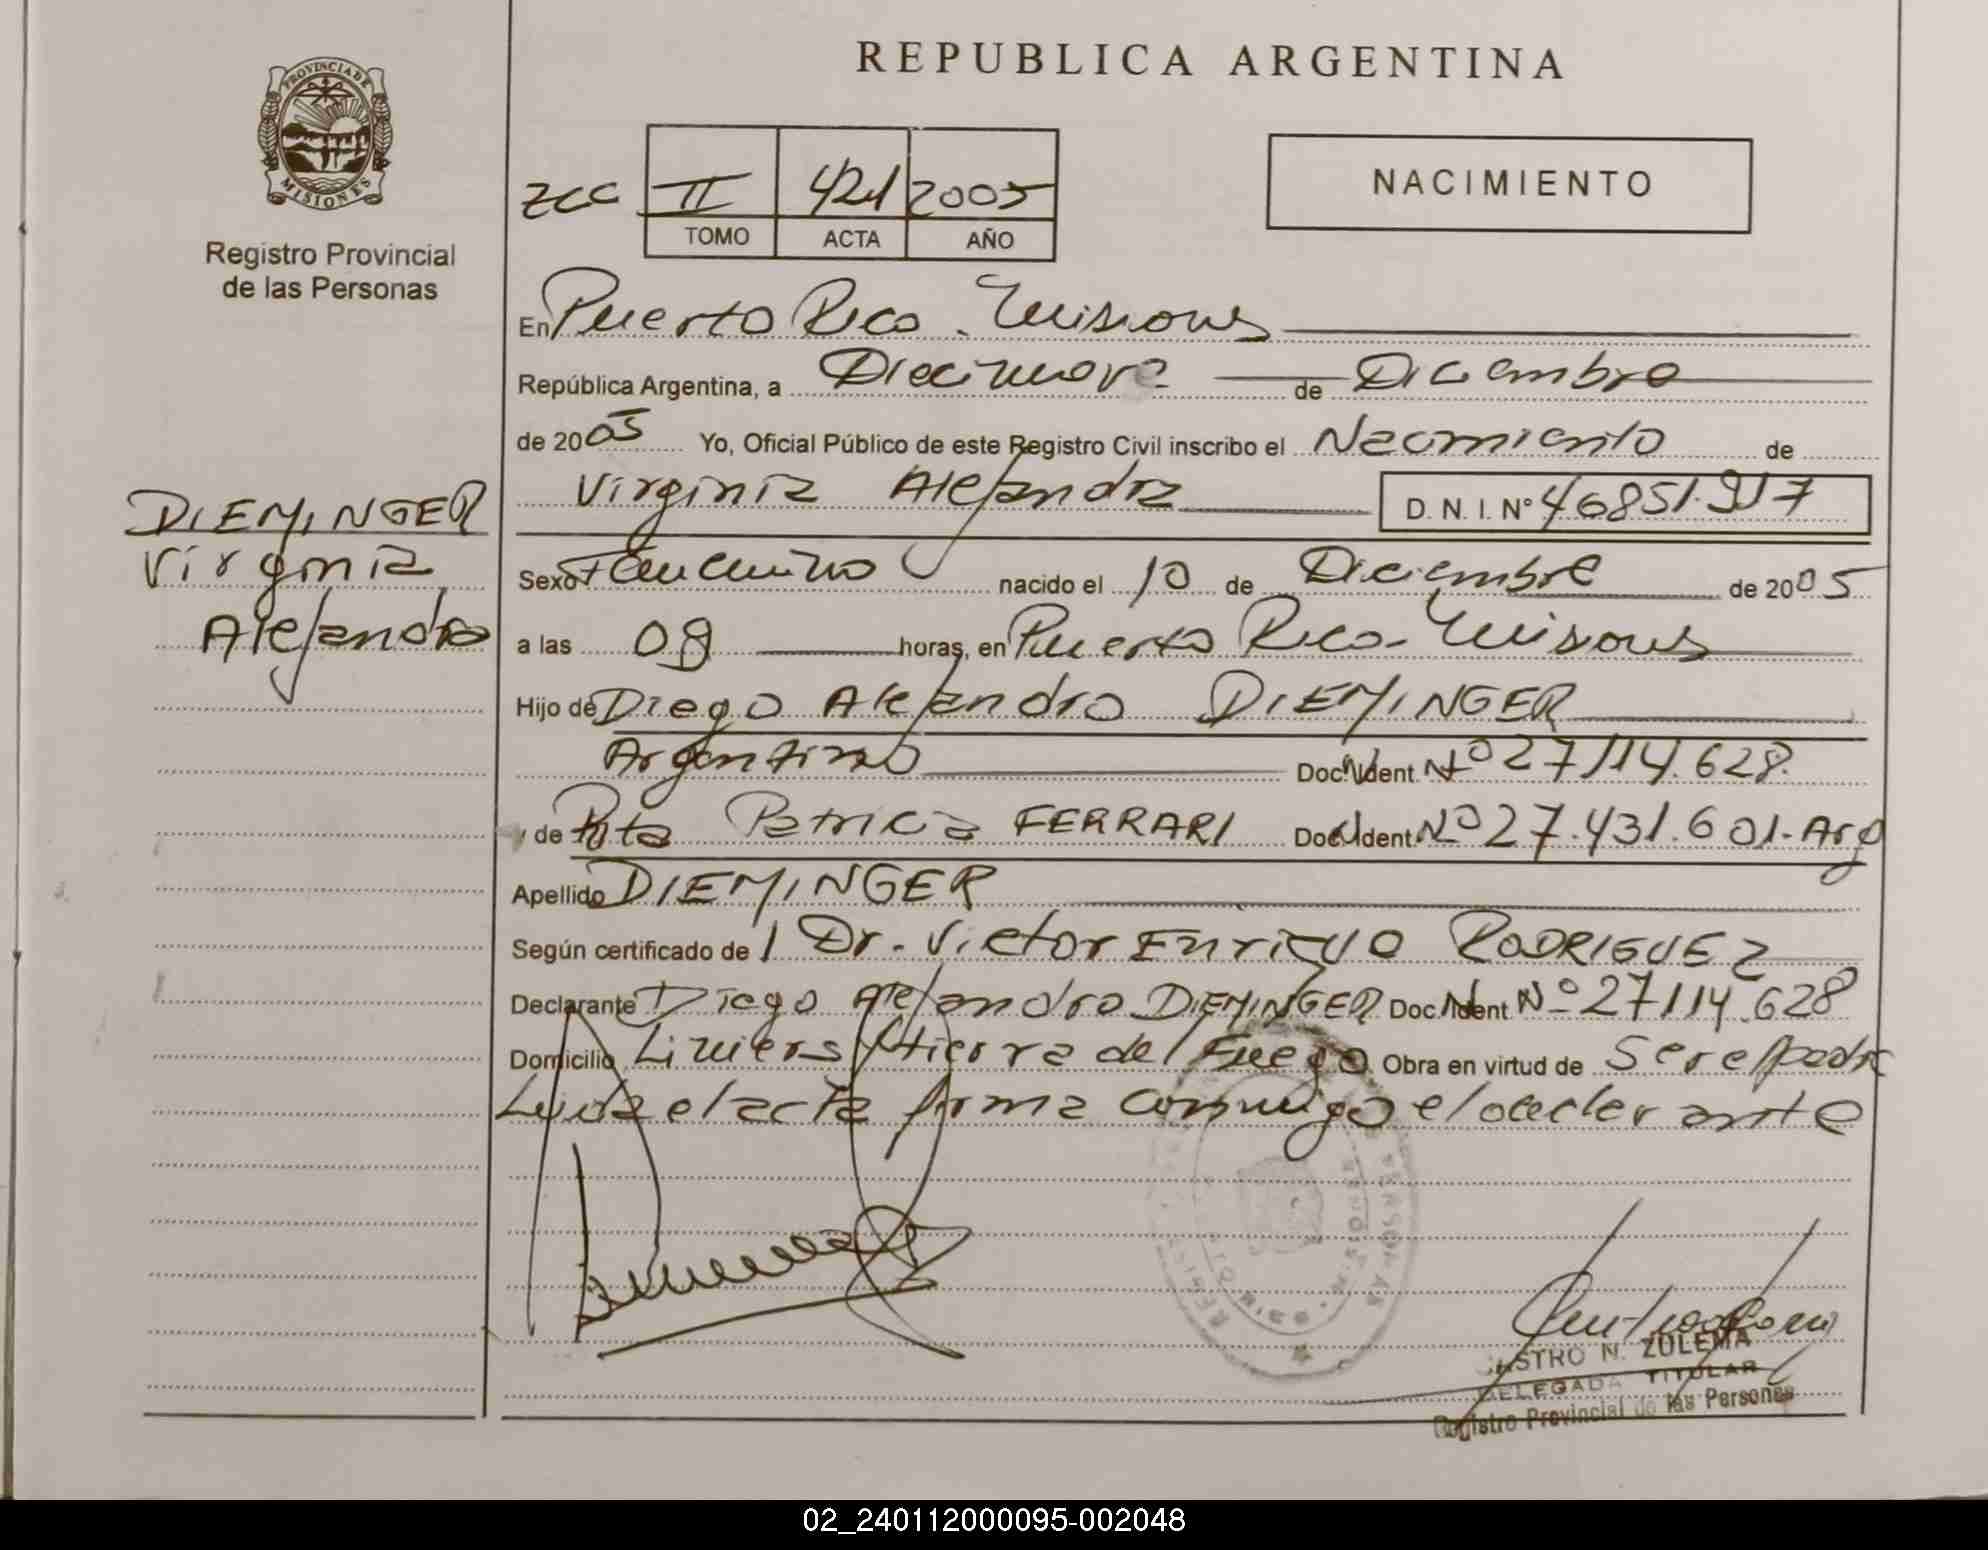 REPUBLICA ARGENTINA
PROVINCIA DE
MISIONES
Registro Provincial
de las Personas
zcc II 421 2005
TOMO ACTA AÑO
NACIMIENTO
En Puerto Rico - Misiones
República Argentina, a Diecinueve de Diciembre
de 2005 Yo, Oficial Público de este Registro Civil inscribo el Nacimiento de
Virginia Alejandra D. N. I. Nº 46851.917
DIEMINGER
Virginia
Alejandra
Sexo Femenino nacido el 10 de Diciembre de 2005
a las 08 horas, en Puerto Rico - Misiones
Hijo de Diego Alejandro DIEMINGER
Argentino Doc. Ident. Nº 27114.628
y de Rita Patricia FERRARI Doc. Ident. Nº 27.431.601-Arg
Apellido DIEMINGER
Según certificado de Dr. Victor Enrique RODRIGUEZ
Declarante Diego Alejandro DIEMINGER Doc. Ident Nº 27114.628
Domicilio Liniers y tierra del Fuego Obra en virtud de Ser el padre
Leida el acta firma conmigo el declarante
CASTRO N. ZULEMA
DELEGADA TITULAR
Registro Provincial de las Personas
02_240112000095-002048